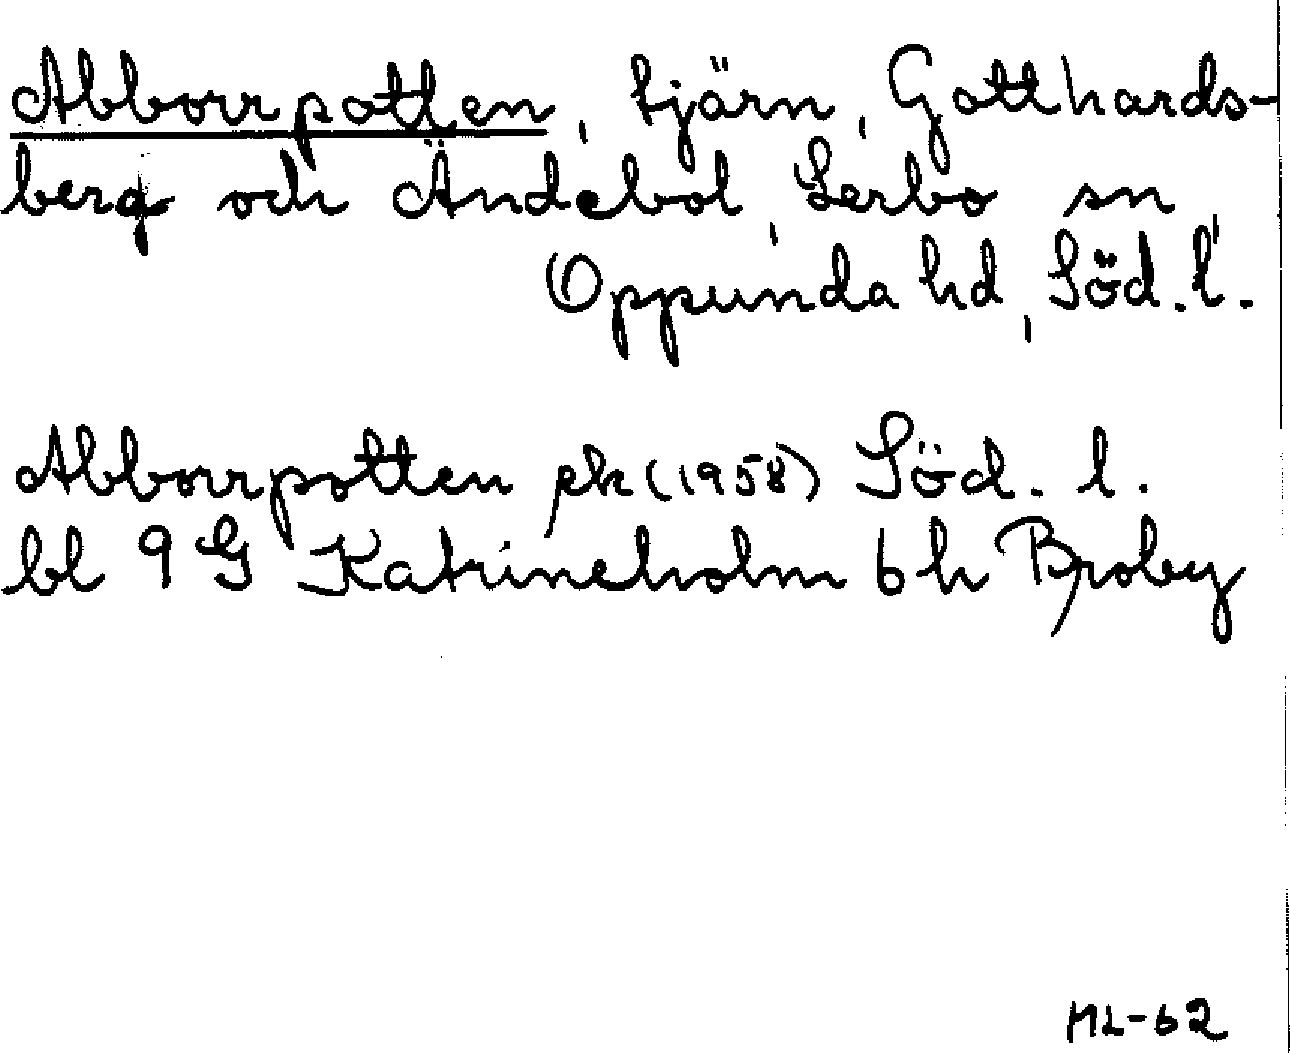 Abborrpotten, tjärn, Gotthards-
berg och Ändebol, Lerbo sn,
Oppunda hd, Söd. l.
Abborrpotten ek (1958) Söd. l.
bl 9 G Katrineholm 6 h Broby
ML-62